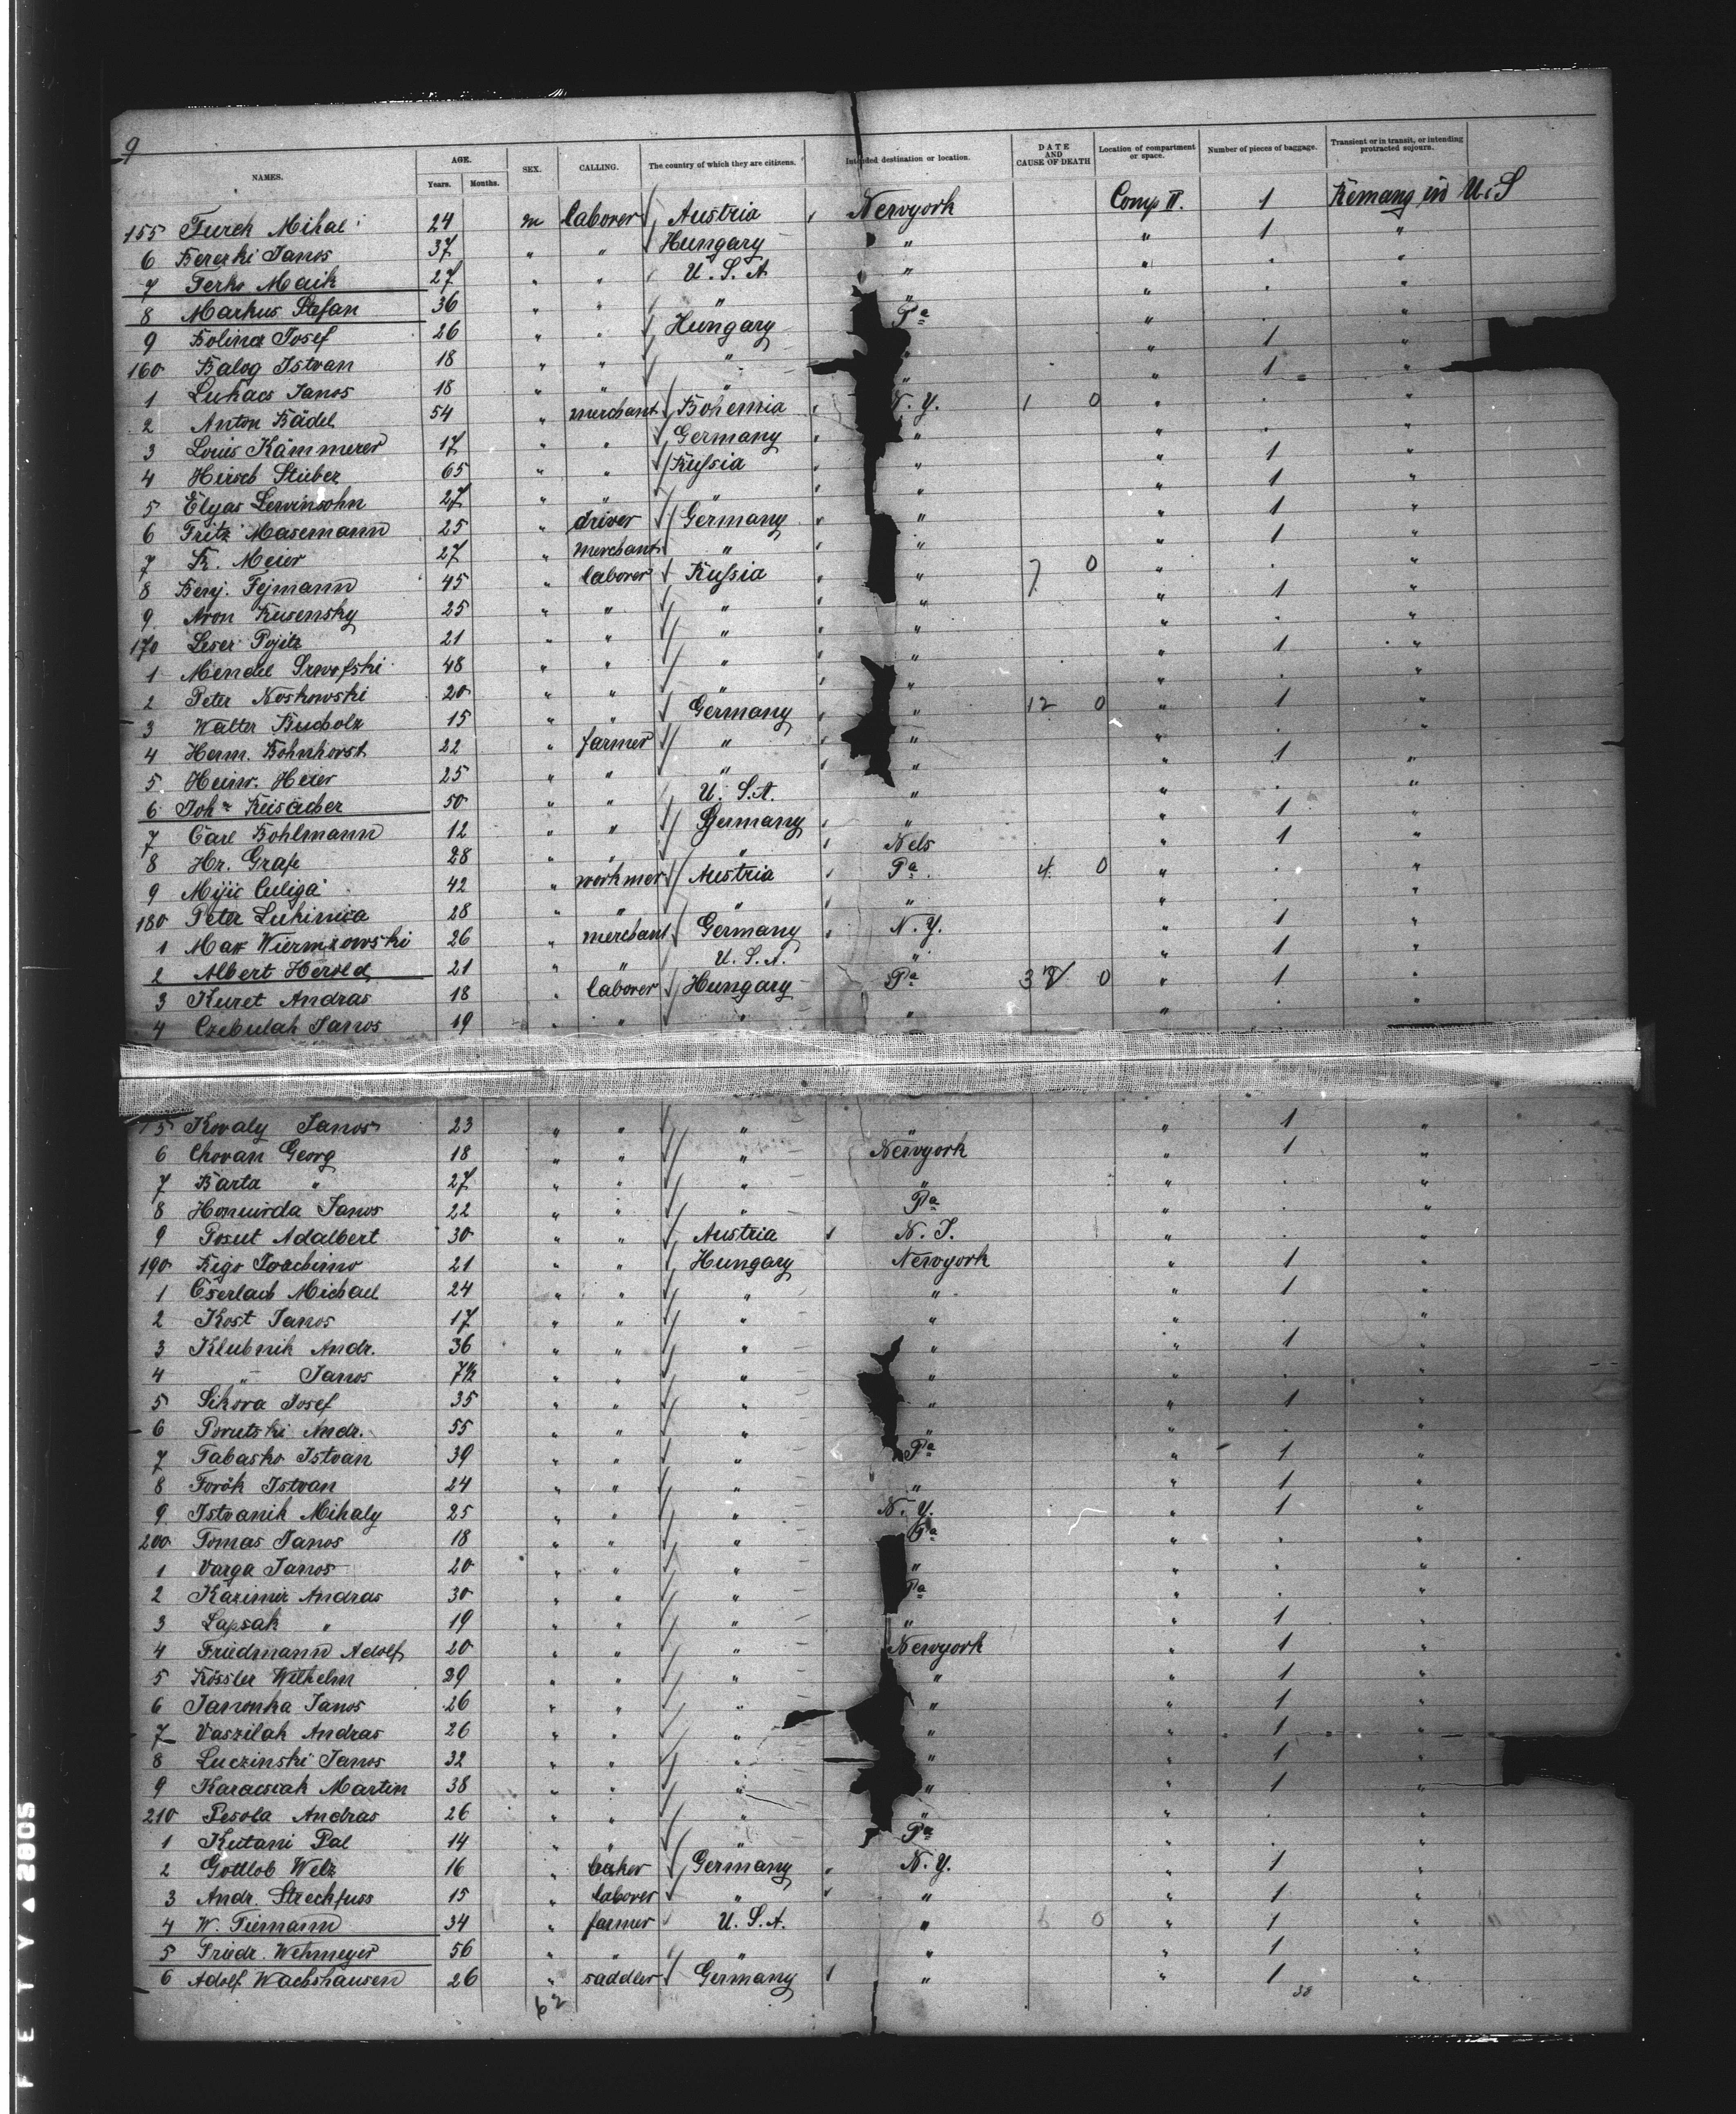 9
NAMES. AGE. Years. Months. SEX. CALLING. The country of which they are citizens. Intended destination or location. DATE AND CAUSE OF DEATH Location of compartment or space. Number of pieces of baggage. Transient or in transit, or intending protracted sojourn.
155 Turek Mihal 24 m laborer Austria Newyork Comp II. 1 Remang in U.S
6 Janos 37 " " Hungary " " 1 "
7 Ferko Maik 27 " " U.S.A " " "
8 Markus Stefan 36 " " " " " "
9 Bolina Josef 26 " " Hungary Pa " "
160 Balog Istvan 18 " " " " " 1 "
1 Lukacs Janos 18 " " " " " 1 "
2 Anton Bädel 54 " merchant Bohemia N.Y. 1 0 " "
3 Louis Kämmerer 17 " " Germany " " "
4 Hirsch Stüber 65 " " Russia " " 1 "
5 Elyas Lewinsohn 27 " " " " " 1 "
6 Fritz Masemann 25 " driver Germany " " 1 "
7 K. Meier 27 " merchant " " " 1 "
8 Benj. Fejmann 45 " laborer Russia " 7 0 " "
9 Aron Rusensky 25 " " " " " 1 "
170 Leser Pojitz 21 " " " " " "
1 Mendel 48 " " " " " 1 "
2 Peter Noskowski 20 " " " " " "
3 Walter Bucholz 15 " " Germany " 12 0 " 1 "
4 Herm. Bohnhorst 22 " farmer " " " "
5 Heinr. Heier 25 " " " " " 1 "
6 Joh. 50 " " U.S.A. " " "
7 Carl Bohlmann 12 " " Germany " " 1 "
8 Hr. Grafe 28 " " " Nels " 1 "
9 Mijic Culiga 42 " workmer Austria Pa 4 0 " "
180 Peter 28 " " " " " "
1 Max 26 " merchant Germany N.Y. " 1 "
2 Albert Herold 21 " " U.S.A. " " 1 "
3 Kuret Andras 18 " laborer Hungary Pa 0 " 1 "
4 Czebulak Janos 19 " " " " " "
5 Kovaly Janos 23 " " " " " 1 "
6 Chovan Georg 18 " " " Newyork " 1 "
7 Barta " 27 " " " " " "
8 Janos 22 " " " Pa " "
9 Posut Adalbert 30 " " Austria N.J. " "
190 Rigo Joachimo 21 " " Hungary Newyork " 1 "
1 Cserlach Michael 24 " " " " " 1 "
2 Kost Janos 17 " " " " " "
3 Klubnik Andr. 36 " " " " " 1 "
4 " Janos 7½ " " " " "
5 Sikora Josef 35 " " " " " 1 "
6 Porutski Andr. 55 " " " " "
7 Tabasko Istvan 39 " " " Pa " 1 "
8 Toröh Istvan 24 " " " " " 1 "
9 Istvanik Mihaly 25 " " " N.Y. " 1 "
200 Tomas Janos 18 " " " Pa " "
1 Varga Janos 20 " " " " "
2 Kazimir Andras 30 " " " Pa " "
3 Lapsak " 19 " " " " " 1 "
4 Friedmann Adolf 20 " " " Newyork " 1 "
5 Kössler Wilhelm 29 " " " " " 1 "
6 Janonka Janos 26 " " " " " 1 "
7 Vaszilak Andras 26 " " " " " 1 "
8 Luczinski Janos 32 " " " " " 1 "
9 Karacsiak Martin 38 " " " " " 1 "
210 Pesola Andras 26 " " " " " "
1 Kutani Pal 14 " " " Pa " "
2 Gottlob Welz 16 " baker Germany N.Y. " 1 "
3 Andr. Strechfuss 15 " laborer " " " 1 "
4 W. Tiemann 34 " farmer U.S.A. " 6 0 " 1 "
5 Friedr. Wehmeyer 56 " " " " " 1 "
6 Adolf Wachshausen 26 " saddler Germany " " 1 "
62 38
FETY 2805